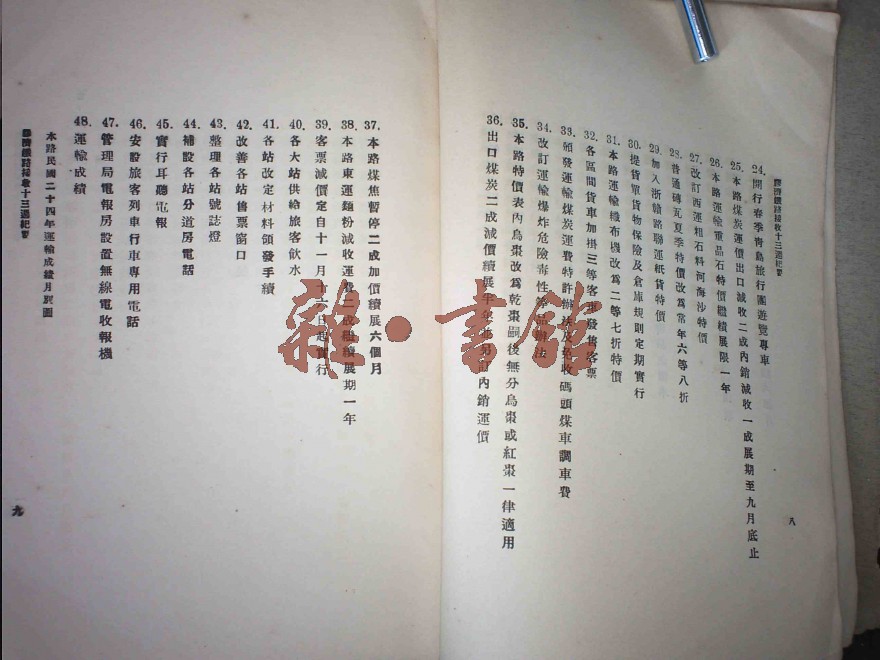 膠濟鐵路接收十三週紀
24.開行春季青島旅行團遊覽專車
25.本路煤炭運價出口減收二成內銷減收一成展期至九月底止
26.本路運輸重晶石特價繼續展限一年
27.改訂西運粗石料河海沙特價
28.普通磚瓦夏季特價改為常年六等八折
29.加入浙贛路聯運紙貨特價
30.提貨單貨物保險及倉庫規則定期實行
31.本路運輸織布機改為二等七折特價
32.各區間貨車加掛三等客車發售客票
33.頒發運輸煤炭運費特許辦法及免收碼頭煤車調車費
34.改訂運輸爆炸危險毒性等品辦法
35.本路特價表內烏棗改為乾棗嗣後無分烏棗或紅棗一律適用
36.出口煤炭二成減價續展半年並另訂內銷運價
八
37.本路煤焦暫停二成加價續展六個月
38.本路東運麵粉減收運費二成繼續展期一年
39.客票減價定自十一月十六日起實行
40.各大站供給旅客飲水
41.各站改定材料領發手續
42.改善各站售票窗口
43.整理各站號誌燈
44.補設各站分道房電話
45.實行耳聽電報
46.安設旅客列車行車專用電話
47.管理局電報房設置無線電收報機
48.運輸成績
本路民國二十四年運輸成績月別圖
膠濟鐵路接收十三週紀
九
雜·書館